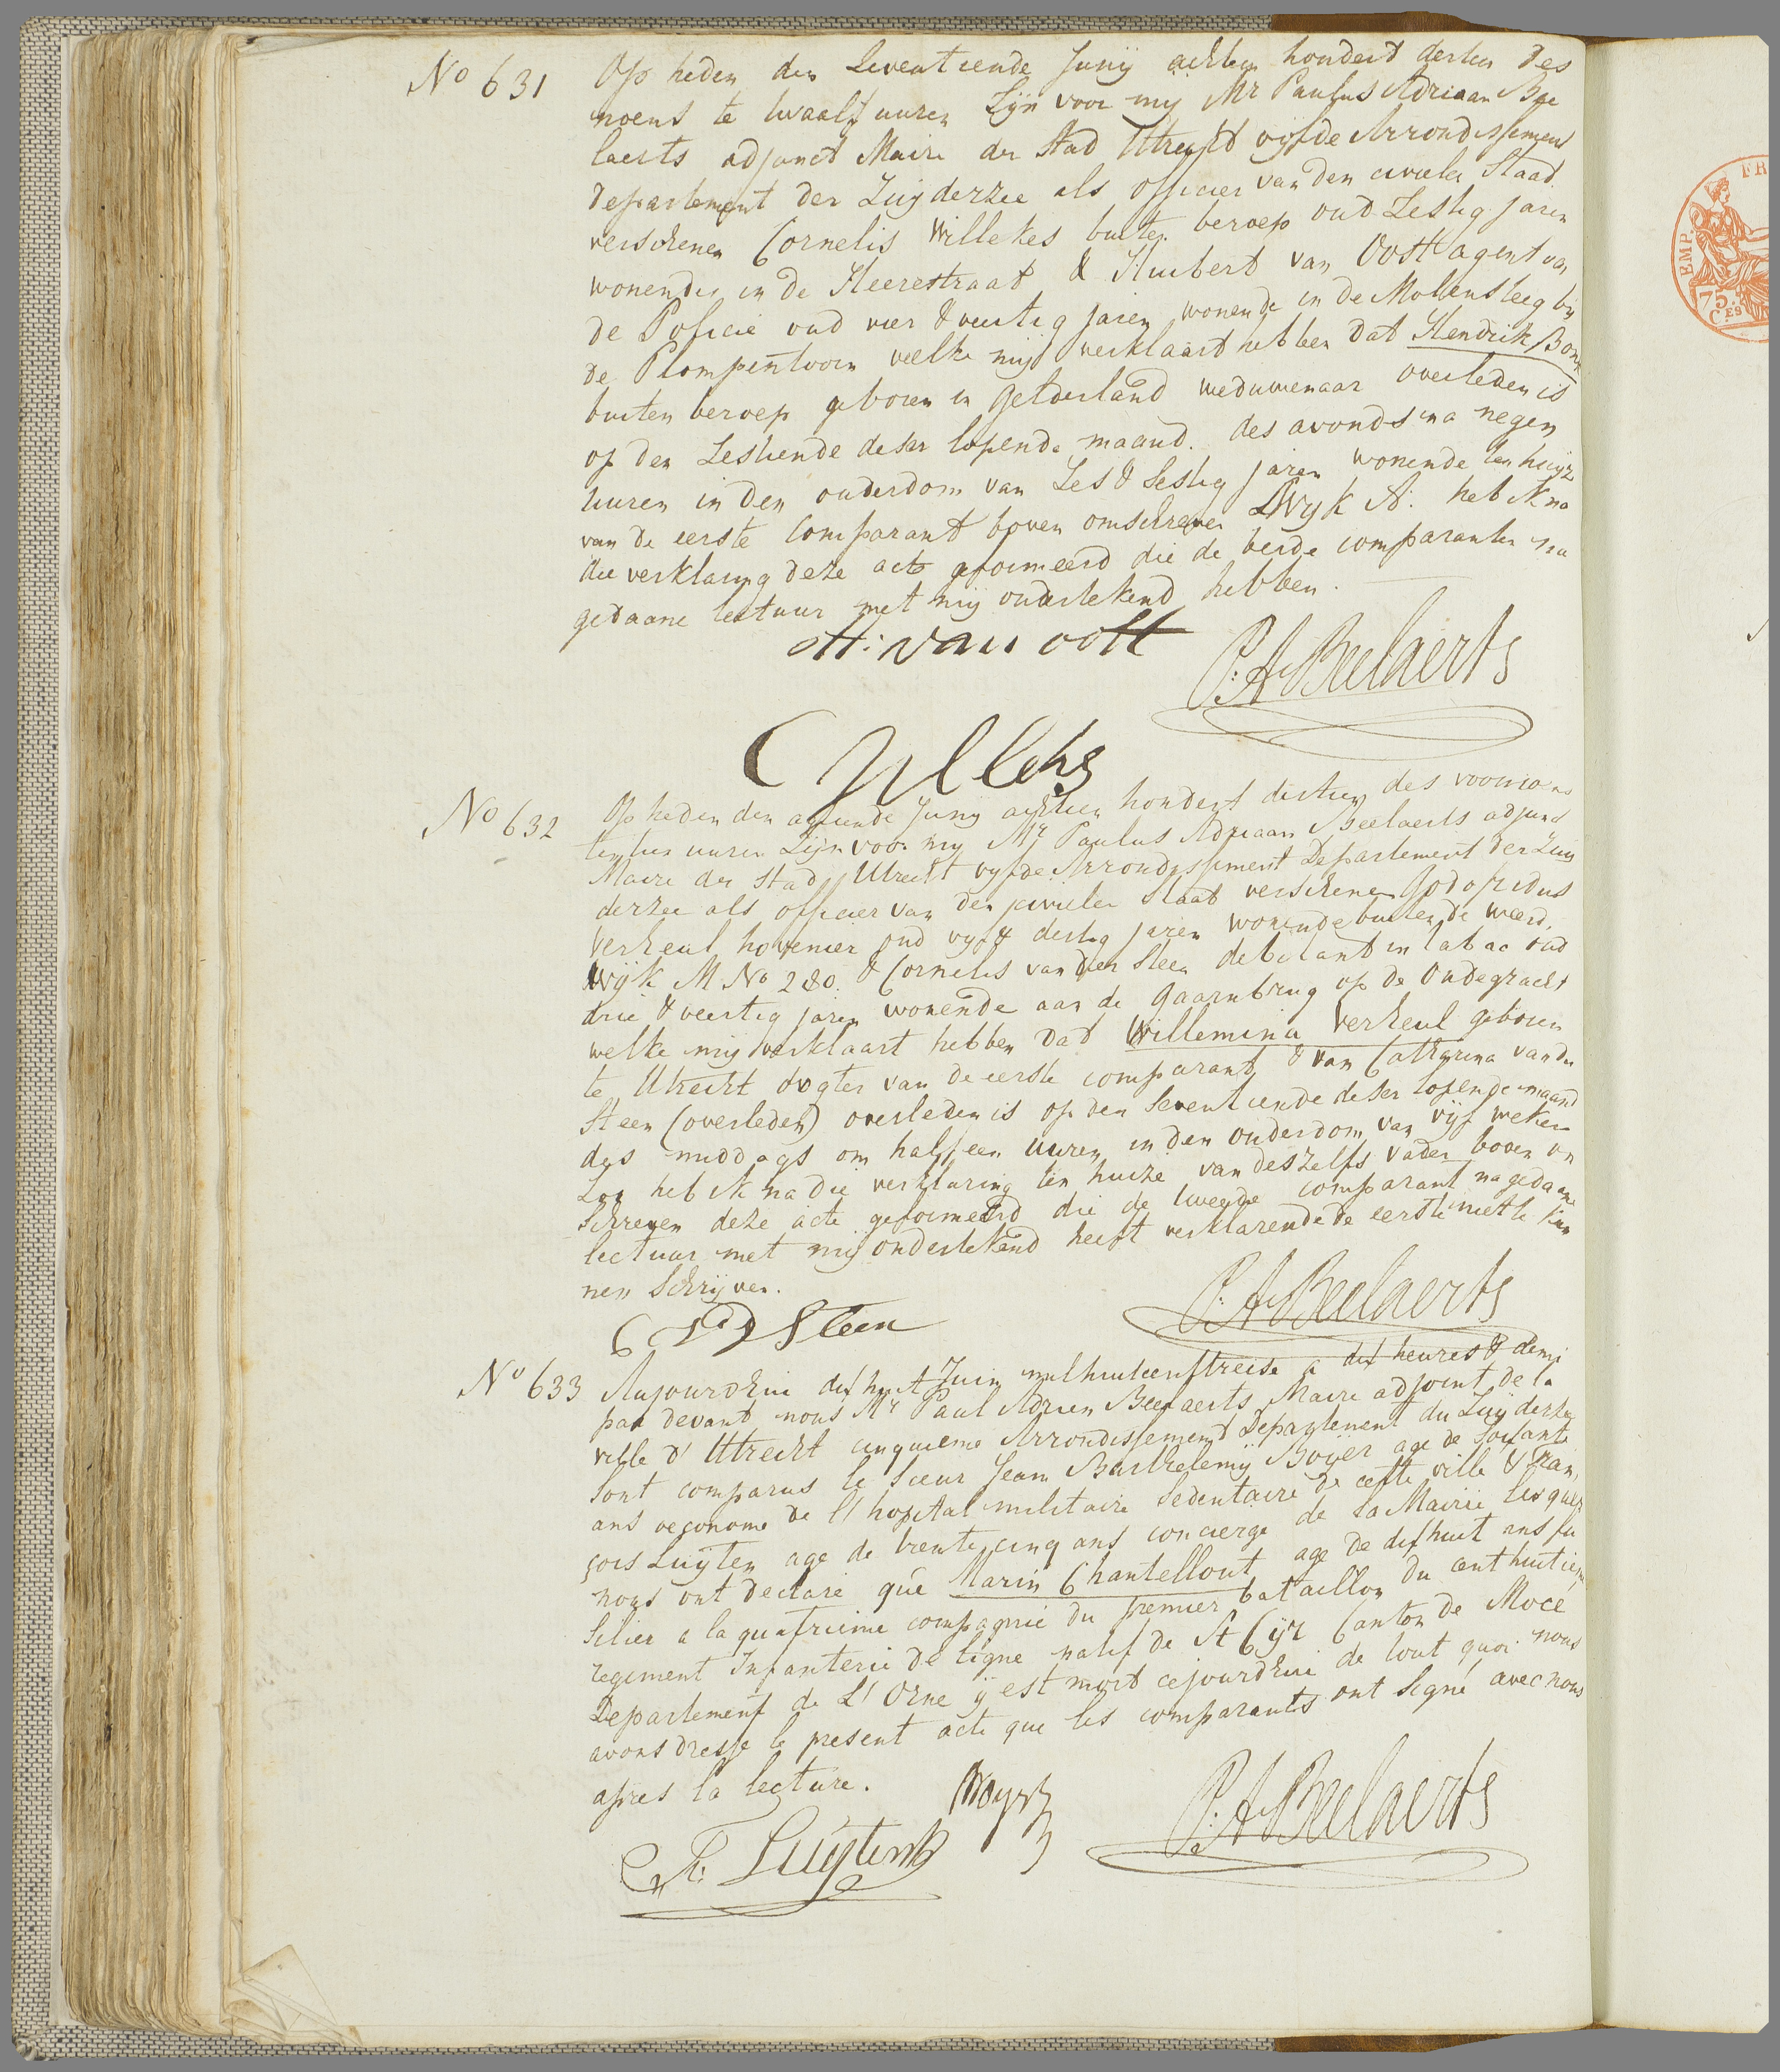 No 631
Op heden den Seventiende Junij achtien hondert dertien des
noens te twaalf uuren Zijn voor mij Mr Paulus Adriaan Bee
laerts adjunct Maire der Stad Utrecht vijfde Arrondissement
Departement der Zuijderzee als officier van den civielen Staat
verschenen Cornelis Willekes buiten beroep oud Zestig jaren
wonende in de Heerestraat & Huibert van Oostt agent van
de Policie oud vier & veertig jaren wonende in de Molensteeg bij
de Plompentoorn welke mij verklaart hebben dat Hendrik Bonk
buiten beroep geboren in Gelderland weduwenaar overleden is
op den Zestiende deser lopende maand des avonds na negen
uuren in den ouderdom van Zes & Sestig jaren wonende ten huyze
van de eerste Comparant boven omschreven Wyk A. heb ik na
die verklaring deze acte geformeerd die de beide comparanten na
gedaane lectuur met mij ondertekend hebben.
H: van oostt
P: A Beelaerts
C Willekes
No 632
Op heden den agtiende Junij achtien hondert dertien des voormid
tien uuren Zijn voor mij Mr Paulus Adriaan Beelaerts adjunct
Maire der Stad Utrecht vyfde Arrondissement Departement der Zuij
derzee als officier van den civielen Staat verschenen Godofridus
Verheul hovenier oud vyf & dertig jaren wonende buiten de Weerd,
Wijk M No 280. & Cornelis van der Steen debitant in tabac oud
drie & veertig jaren wonende aan de Gaarnbrug op de Oudegracht
welke mij verklaart hebben dat Willemina Verheul geboren
te Utrecht dogter van de eerste comparant & van Catharina van der
Steen (overleden) overleden is op den Seventiende deser lopende maand
des middags om half een uuren in den ouderdom van vijf weken
Zoo heb ik na die verklaring ten huize van deszelfs vader boven om
Schreven deze acte geformeerd die de tweede comparant na gedaane
lectuur met mij ondertekend heeft verklarende de eerste niet te kun
nen Schrijver.
C V D Steen
P: A Beelaerts
No 633
Aujourdhui dix huit Juin milhuitcenttreise a dix heures & demi
par devant nous Mr Paul Adrien Beelaerts Maire adjoint de la
ville d'Utrecht cinquieme Arrondissement Departement du Zuijderzee
Sont comparus le Sieur Jean Barthelemij Boyer age de Soixante
ans oeconome de l'hopital militaire Sedentaire de cette ville & Fran,
cois Luijten age de trente cinq ans concierge de la Mairie lesquels
nous ont declare que Marin Chantellout age de dixhuit ans fu
Silier a la quatrieme compagnie du premier bataillon du cent huitieme
regiment Infanterie de ligne natif de St Cijr Canton de Moce
Departement de L'Orne ij est mort cejourdhui de tout quoi nous
avons dresse le present acte que les comparants ont Signé avec nous
apres la lecture.
Boyer
F. Luijten
P: A Beelaerts
EMP.
FR
75
Ces